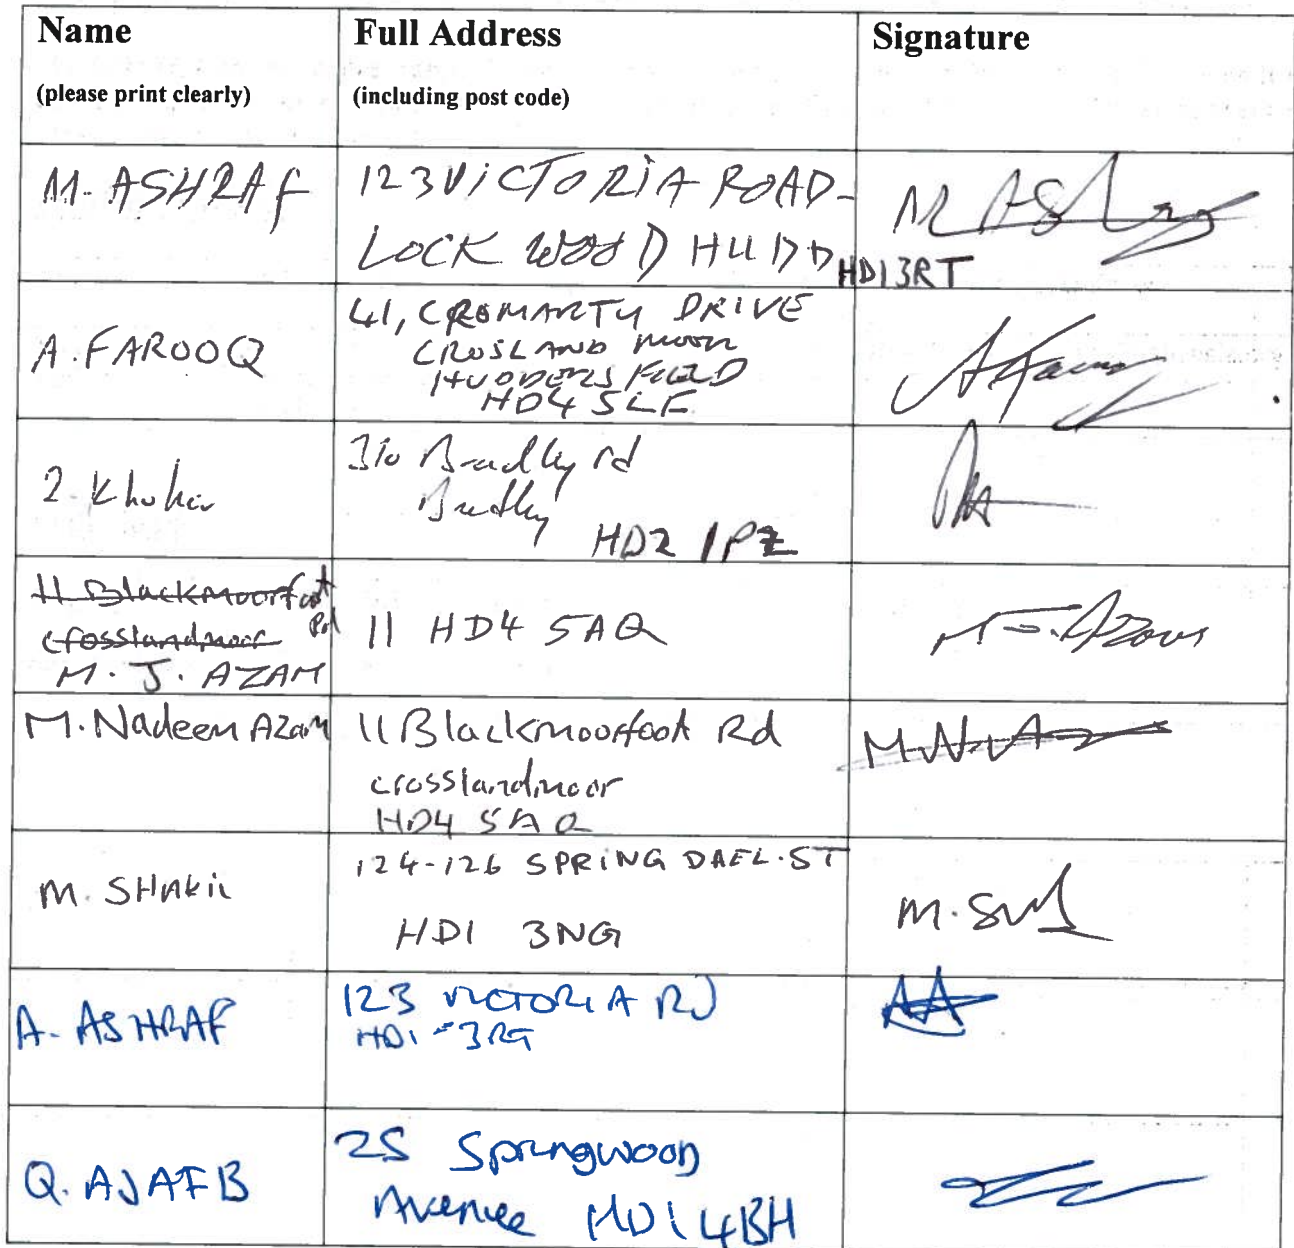 Name Full Address Signature
(please print clearly) (including post code)
M. ASHRAf 123 ViCTORiA ROAD- M Ashraf
LOCK WOOD HUDD HD1 3RT
A. FAROOQ 41, CROMARTY DRIVE
CROSLAND MOOR
HUDDERSFIELD
HD4 5LF
Z Khokar 310 Bradley rd
Bradley
HD2 1PZ
11 Blackmoorfoot Rd
crosslandmoor
M. J. AZAM 11 HD4 5AQ M J. Azam
M. Nadeem Azam 11 Blackmoorfoot Rd M.N.A
crosslandmoor
HD4 5AQ
M. SHAkiL 124-126 SPRiNG DAEL.ST
HD1 3NG
A. ASHRAF 123 VICTORIA RD AA
HD1 - 3RG
Q. AJAIB 25 Springwood
Avenue HD1 4BH